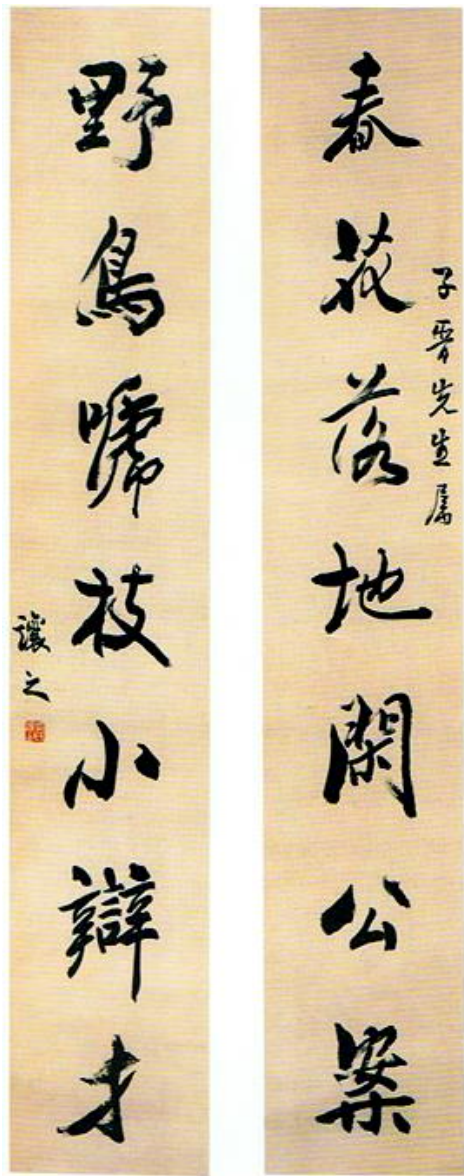 春花落地閑公案
子晉先生屬
野鳥嗁枝小辯才
讓之